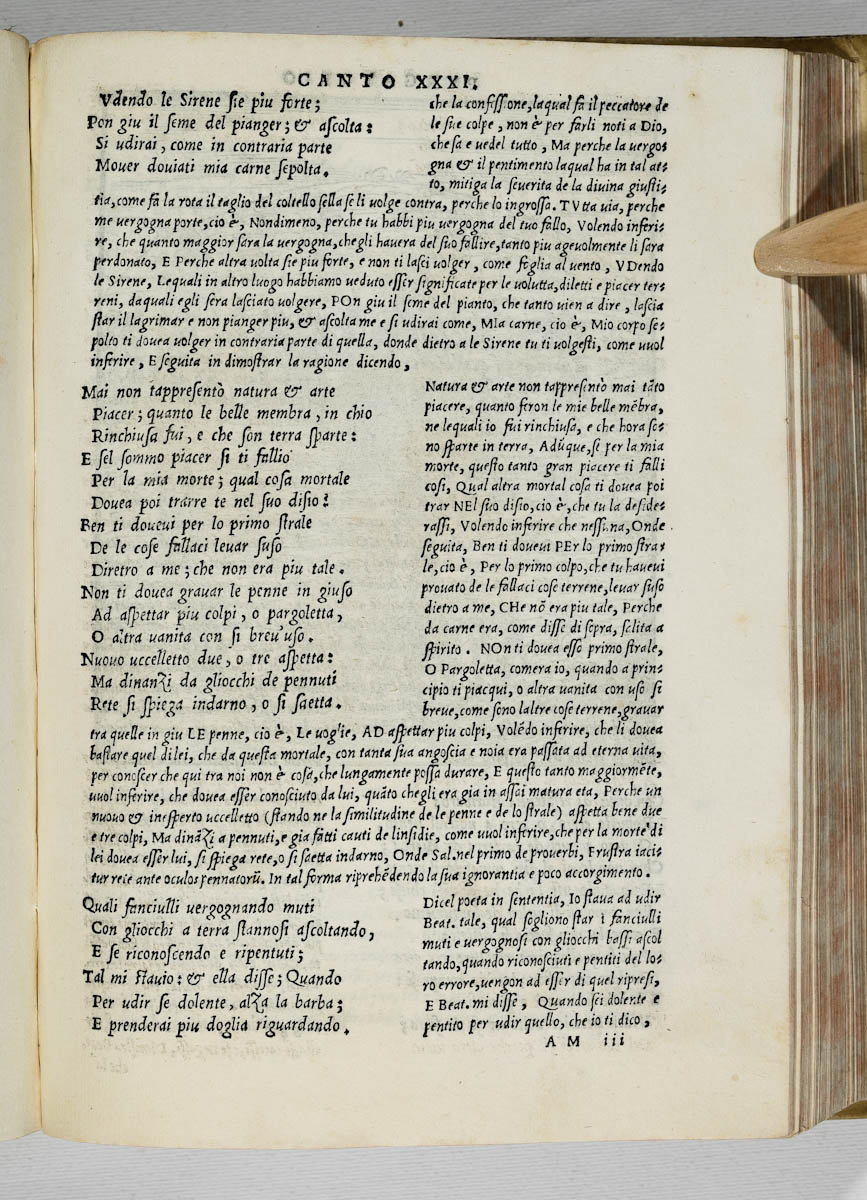 CANTO XXXI.
Vdendo le Sirene sie piu forte;
Pon giu il seme del pianger; & ascolta:
Si udirai, come in contraria parte
Mouer douiati mia carne sepolta.
che la confissione, laqual fa il peccatore de
le sue colpe, non è per farli noti a Dio,
che sa e uedel tutto, Ma perche la uergo-
gna & il pentimento laqual ha in tal at-
to, mitiga la seuerita de la diuina giusti-
tia, come fa la rota il taglio del coltello sella se li uolge contra, perche lo ingrossa. TVtta uia, perche
me uergogna porte, cio è, Nondimeno, perche tu habbi piu uergogna del tuo fallo, Volendo inferi-
re, che quanto maggior sara la uergogna, chegli hauera del suo fallire, tanto piu ageuolmente li sara
perdonato, E Perche altra uolta sie piu forte, e non ti lasci uolger, come foglia al uento, VDendo
le Sirene, Lequali in altro luogo habbiamo ueduto esser significate per le uolutta, diletti e piacer ter-
reni, da quali egli sera lasciato uolgere, POn giu il seme del pianto, che tanto uien a dire, lascia
star il lagrimar e non pianger piu, & ascolta me e si udirai come, MIa carne, cio è, Mio corpo se-
polto ti douea uolger in contraria parte di quella, donde dietro a le Sirene tu ti uolgesti, come uuol
inferire, E seguita in dimostrar la ragione dicendo,
Mai non tappresentò natura & arte
Piacer; quanto le belle membra, in chio
Rinchiusa fui, e che son terra sparte:
E sel sommo piacer si ti fallio
Per la mia morte; qual cosa mortale
Douea poi trarre te nel suo disio?
Ben ti doueui per lo primo strale
De le cose fallaci leuar suso
Diretro a me; che non era piu tale.
Non ti douea grauar le penne in giuso
Ad aspettar piu colpi, o pargoletta,
O altra uanita con si breu'uso.
Nuouo uccelletto due, o tre aspetta:
Ma dinanzi da gliocchi de pennuti
Rete si spiega indarno, o si saetta.
Natura & arte non tappresintò mai tãto
piacere, quanto feron le mie belle mẽbra,
ne lequali io fui rinchiusa, e che hora so-
no sparte in terra, Adũque, se per la mia
morte, questo tanto gran piacere ti falli
cosi, Qual altra mortal cosa ti douea poi
trar NEl suo disio, cio è, che tu la deside-
rassi, Volendo inferire che nessuna, Onde
seguita, Ben ti doueui PEr lo primo stra-
le, cio è, Per lo primo colpo, che tu haueui
prouato de le fallaci cose terrene, leuar suso
dietro a me, CHe nõ era piu tale, Perche
da carne era, come disse di sopra, salita a
spirito. NOn ti douea esso primo strale,
O Pargoletta, comera io, quando a prin-
cipio ti piacqui, o altra uanita con uso si
breue, come sono laltre cose terrene, grauar
tra quelle in giu LE penne, cio è, Le uoglie, AD aspettar piu colpi, Volẽdo inferire, che li douea
bastare quel di lei, che da questa mortale, con tanta sua angoscia e noia era passata ad eterna uita,
per conoscer che qui tra noi non è cosa, che lungamente possa durare, E questo tanto maggiormẽte,
uuol inferire, che douea esser conosciuto da lui, quãto chegli era gia in assai matura eta, Perche un
nuouo & inesperto uccelletto (stando ne la similitudine de le penne e de lo strale) aspetta bene due
e tre colpi, Ma dinãzi a pennuti, e gia fatti cauti de linsidie, come uuol inferire, che per la morte di
lei douea esser lui, si spiega rete, o si saetta indarno, Onde Sal. nel primo de prouerbi, Frustra iaci-
tur rete ante oculos pennatorũ. In tal forma riprehẽdendo la sua ignorantia e poco accorgimento.
Quali fanciulli uergognando muti
Con gliocchi a terra stannosi ascoltando,
E se riconoscendo e ripentuti;
Tal mi stauio: & ella disse; Quando
Per udir se dolente, alza la barba;
E prenderai piu doglia riguardando.
Dicel poeta in sententia, Io staua ad udir
Beat. tale, qual sogliono star i fanciulli
muti e uergognosi con gliocchi bassi ascol
tando, quando riconosciuti e pentiti del lo-
ro errore, uengon ad esser di quel ripresi,
E Beat. mi disse, Quando sei dolente e
pentito per udir quello, che io ti dico,
A M iii